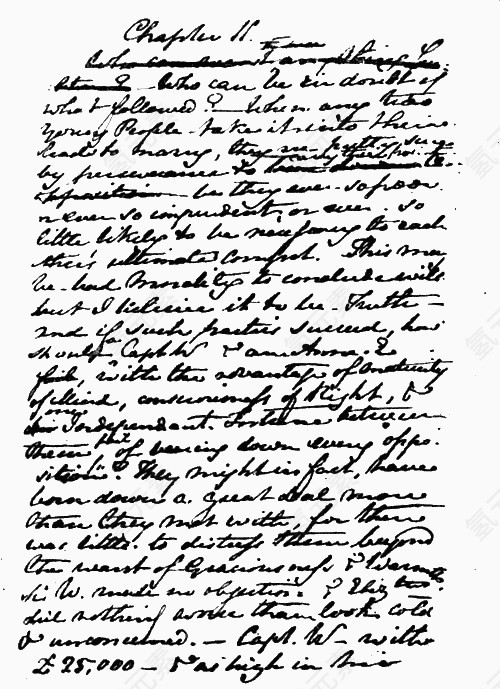 Chapter 11.
Who can be in doubt of
what followed? — When any two
Young People take it into their
heads to marry, they are pretty sure
by perseverance to carry their point —
be they ever so poor,
or ever so imprudent, or ever so
little likely to be necessary to each
other's ultimate comfort. This may
be bad Morality to conclude with,
but I believe it to be Truth —
and if such parties succeed, how
should a Capt. W— & an Anne E—
fail, with the advantage of Maturity
of Mind, consciousness of Right, &
one Independant Fortune between
them fail of bearing down every oppo-
sition? They might in fact, have
born down a great deal more
than they met with, for there
was little to distress them beyond
the want of Graciousness & Warmth.
Sir W. made no objection, & Eliz:th
did nothing worse than look cold
& unconcerned. — Capt. W— with
£25,000 — & as high in his